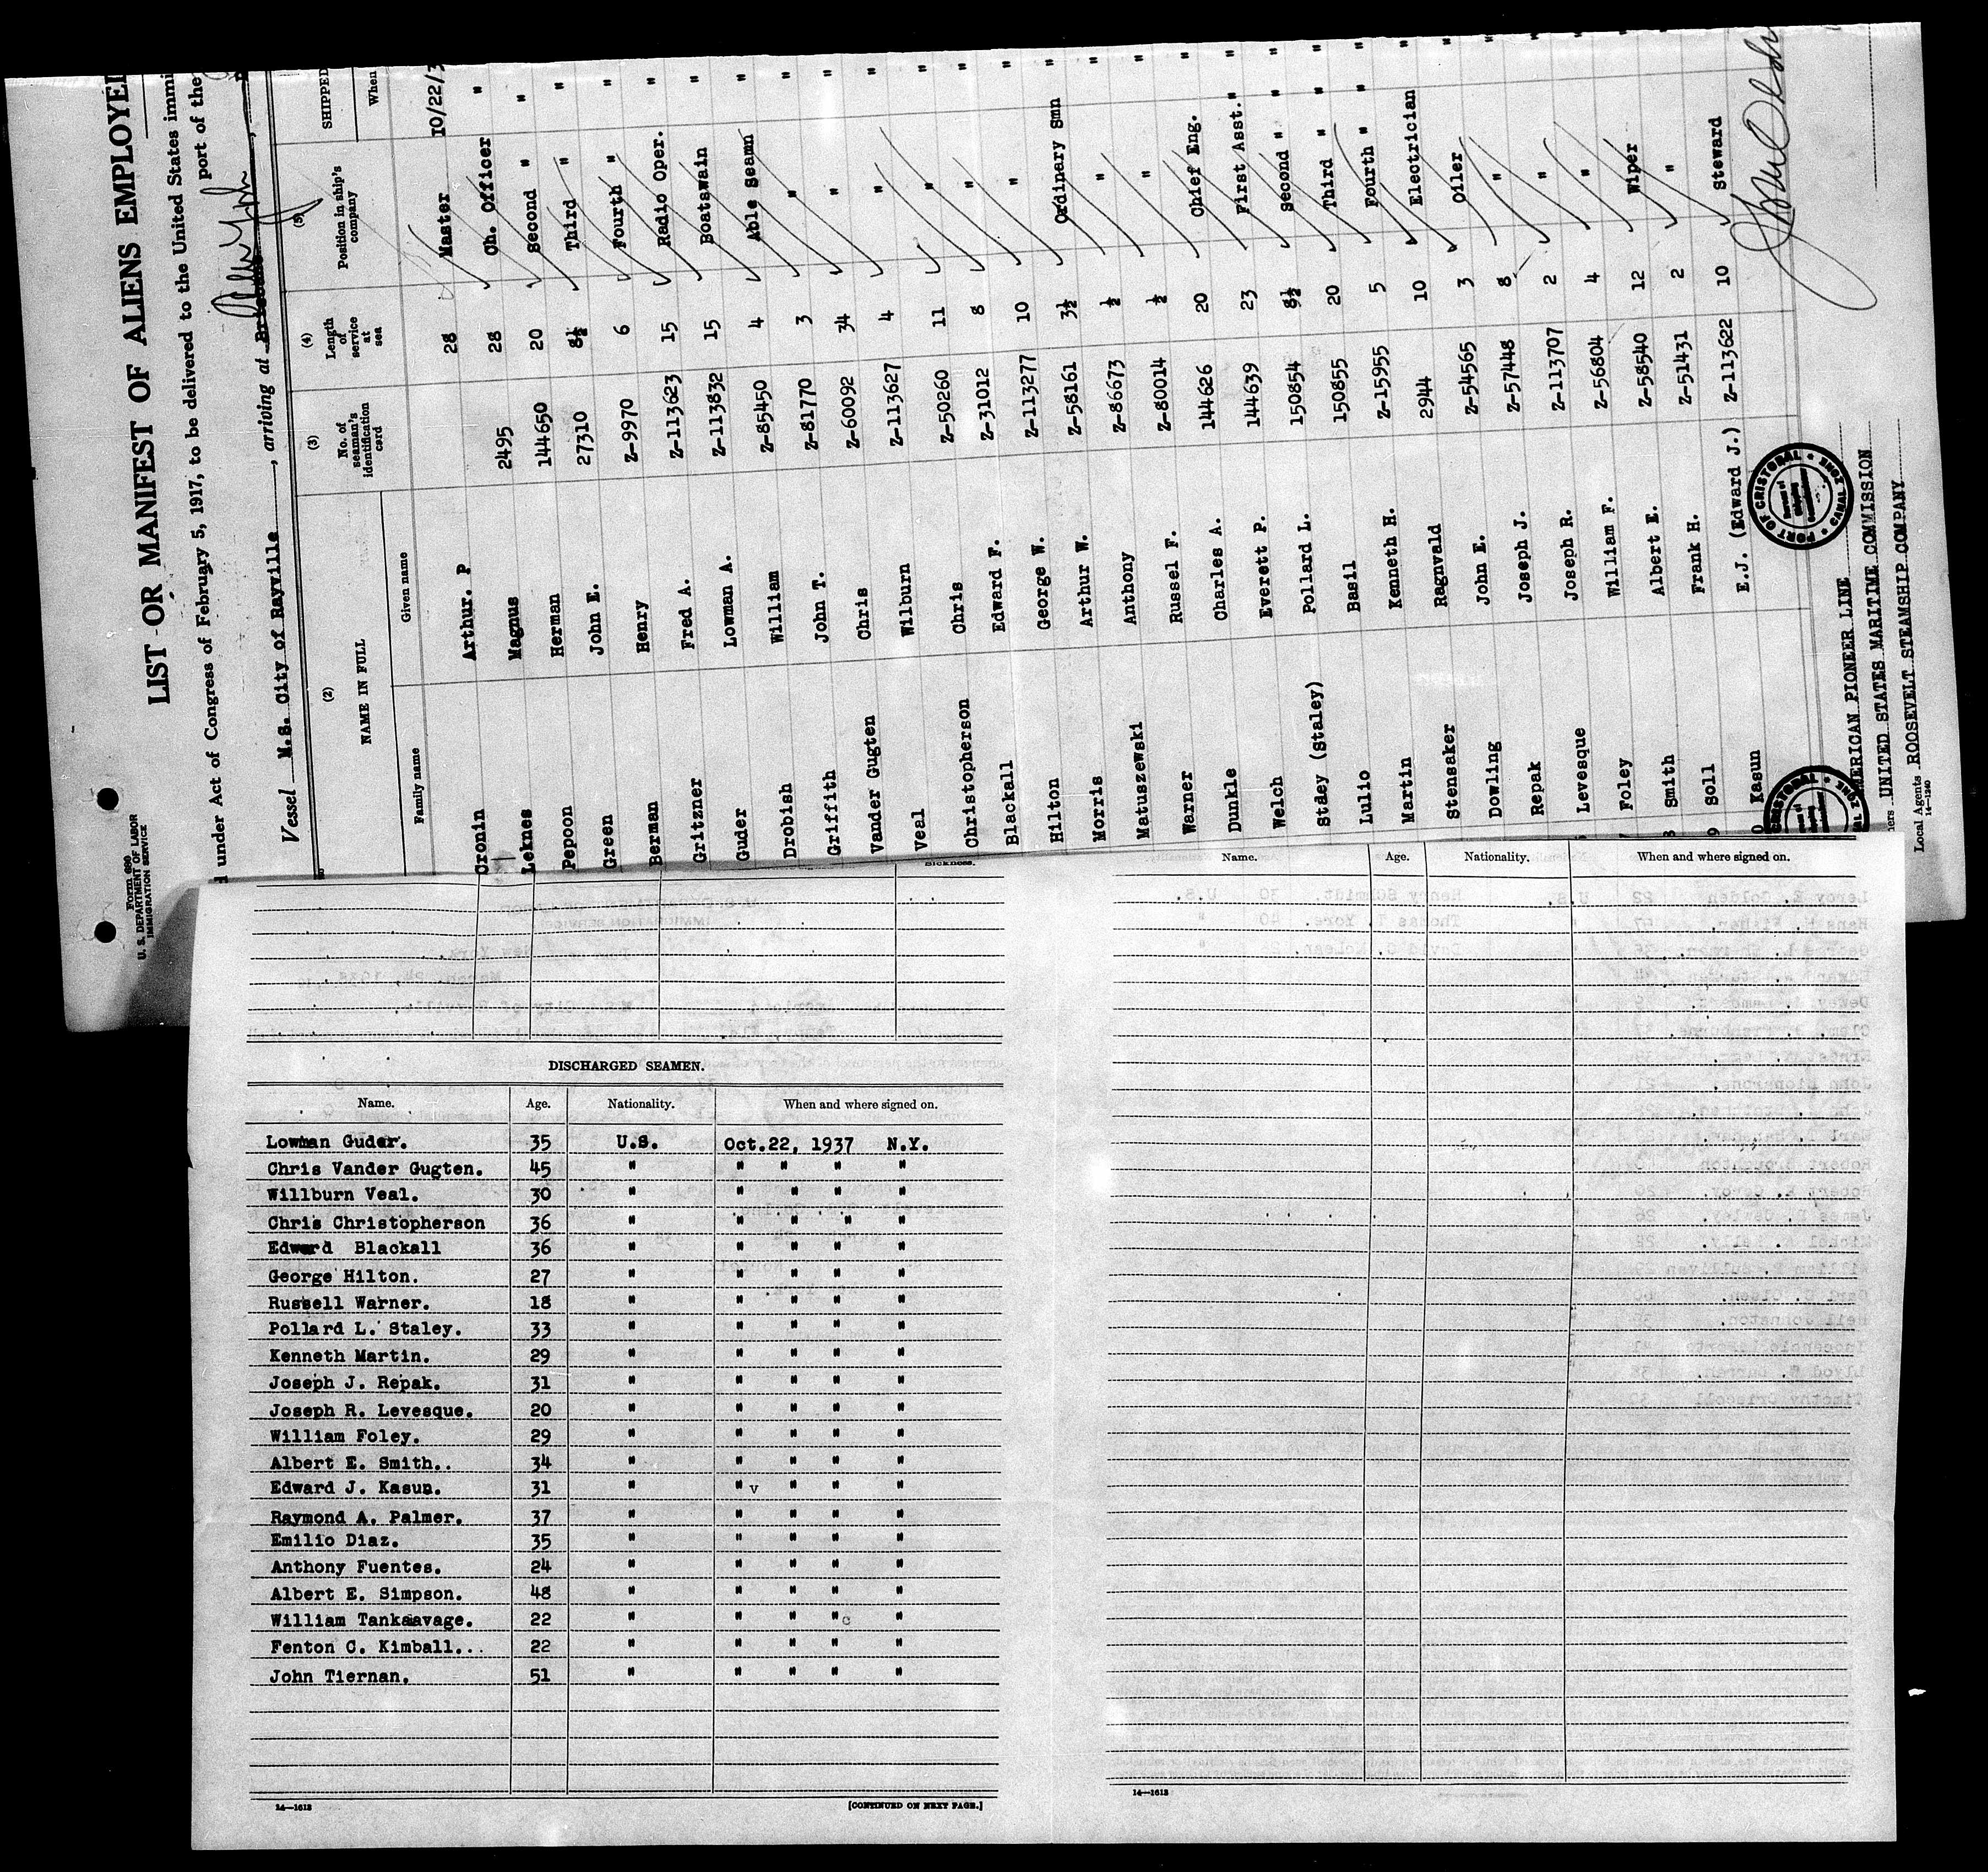 Form 680
U. S. DEPARTMENT OF LABOR
IMMIGRATION SERVICE
LIST OR MANIFEST OF ALIENS EMPLOYED
under Act of Congress of February 5, 1917, to be delivered to the United States immi
port of the
Vessel M.S. City of Rayville, arriving at
(2) (3) (4) (5)
NAME IN FULL No. of seaman's identification card Length of service at sea Position in ship's company SHIPPED
Family name Given name When
Cronin Arthur. P 28 Master 10/22/3
Leknes Magnus 2495 28 Ch. Officer "
Pepoon Herman 144650 20 Second " "
Green John E. 27310 8½ Third " "
Berman Henry Z-9970 6 Fourth " "
Gritzner Fred A. Z-113623 15 Radio Oper. "
Guder Lowman A. Z-113832 15 Boatswain "
Drobish William Z-85450 4 Able Seamn "
Griffith John T. Z-81770 3 " "
Vander Gugten Chris Z-60092 34 " "
Veal Wilburn Z-113627 4 " "
Christopherson Chris Z-50260 11 " "
Blackall Edward F. Z-31012 8 " "
Hilton George W. Z-113277 10 " "
Morris Arthur W. Z-58161 3½ Ordinary Smn "
Matuszewski Anthony Z-86673 ½ " "
Warner Russel F. Z-80014 ½ " "
Dunkle Charles A. 144626 20 Chief Eng. "
Welch Everett P. 144639 23 First Asst. "
Staley (Staley) Pollard L. 150854 8½ Second " "
Lulio Basil 150855 20 Third " "
Martin Kenneth H. Z-15955 5 Fourth " "
Stensaker Ragnvald 2944 10 Electrician "
Dowling John E. Z-54565 3 Oiler "
Repak Joseph J. Z-57448 8 " "
Levesque Joseph R. Z-113707 2 " "
Foley William F. Z-56804 4 " "
Smith Albert E. Z-58540 12 Wiper "
Soll Frank H. Z-51431 2 " "
Kasun E.J. (Edward J.) Z-113622 10 Steward "
PORT OF CRISTOBAL
CANAL ZONE
MERICAN PIONEER LINE
ners UNITED STATES MARITIME COMMISSION
Local Agents ROOSEVELT STEAMSHIP COMPANY
14—1240
Sickness.
DISCHARGED SEAMEN.
Name. Age. Nationality. When and where signed on.
Lowman Guder. 35 U.S. Oct.22, 1937 N.Y.
Chris Vander Gugten. 45 " " " " "
Willburn Veal. 30 " " " " "
Chris Christopherson 36 " " " " "
Edward Blackall 36 " " " " "
George Hilton. 27 " " " " "
Russell Warner. 18 " " " " "
Pollard L. Staley. 33 " " " " "
Kenneth Martin. 29 " " " " "
Joseph J. Repak. 31 " " " " "
Joseph R. Levesque. 20 " " " " "
William Foley. 29 " " " " "
Albert E. Smith.. 34 " " " " "
Edward J. Kasun. 31 " " v " " "
Raymond A. Palmer. 37 " " " " "
Emilio Diaz. 35 " " " " "
Anthony Fuentes. 24 " " " " "
Albert E. Simpson. 48 " " " " "
William Tanksavage. 22 " " " " c "
Fenton C. Kimball... 22 " " " " "
John Tiernan. 51 " " " " "
14—1613 [CONTINUED ON NEXT PAGE.]
Name. Age. Nationality. When and where signed on.
14—1613